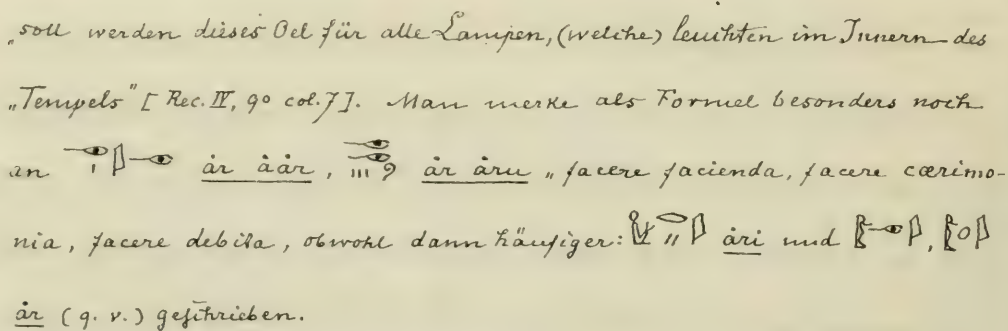 „soll werden dieses Oel für alle Lampen, (welche) leuchten im Innern des
„Tempels" [Rec. IV, 90 col. 7]. Man merke als Formel besonders noch
an år åår, år åru „facere facienda, facere cærimo-
nia, facere debita, obwohl dann häufiger: åri und
år (q. v.) geschrieben.